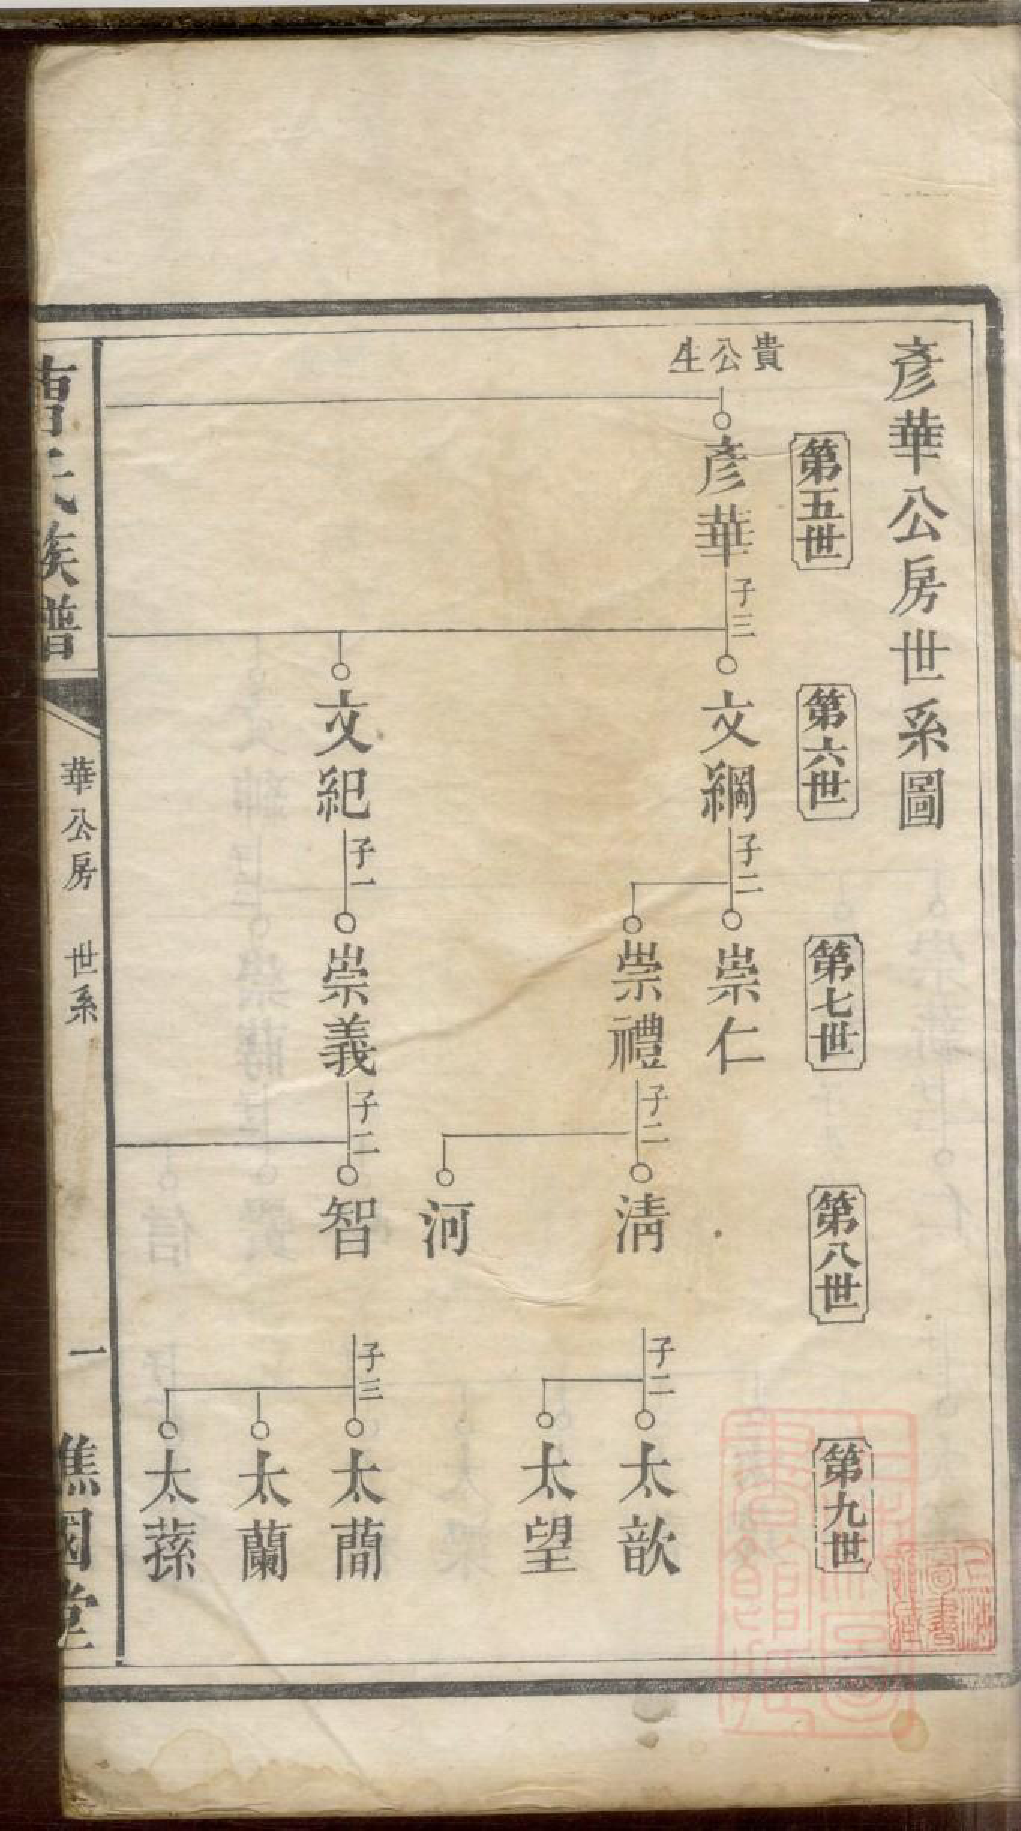 彥華公房世系圖
第五世
第六世
第七世
第八世
第九世
貴公生
彥華
子三
文綱
子二
崇仁
崇禮
子二
清
子二
太歆
太望
河
文紀
子一
崇義
子二
智
子三
太蕳
太蘭
太蓀
族譜
華公房 世系
一
國堂